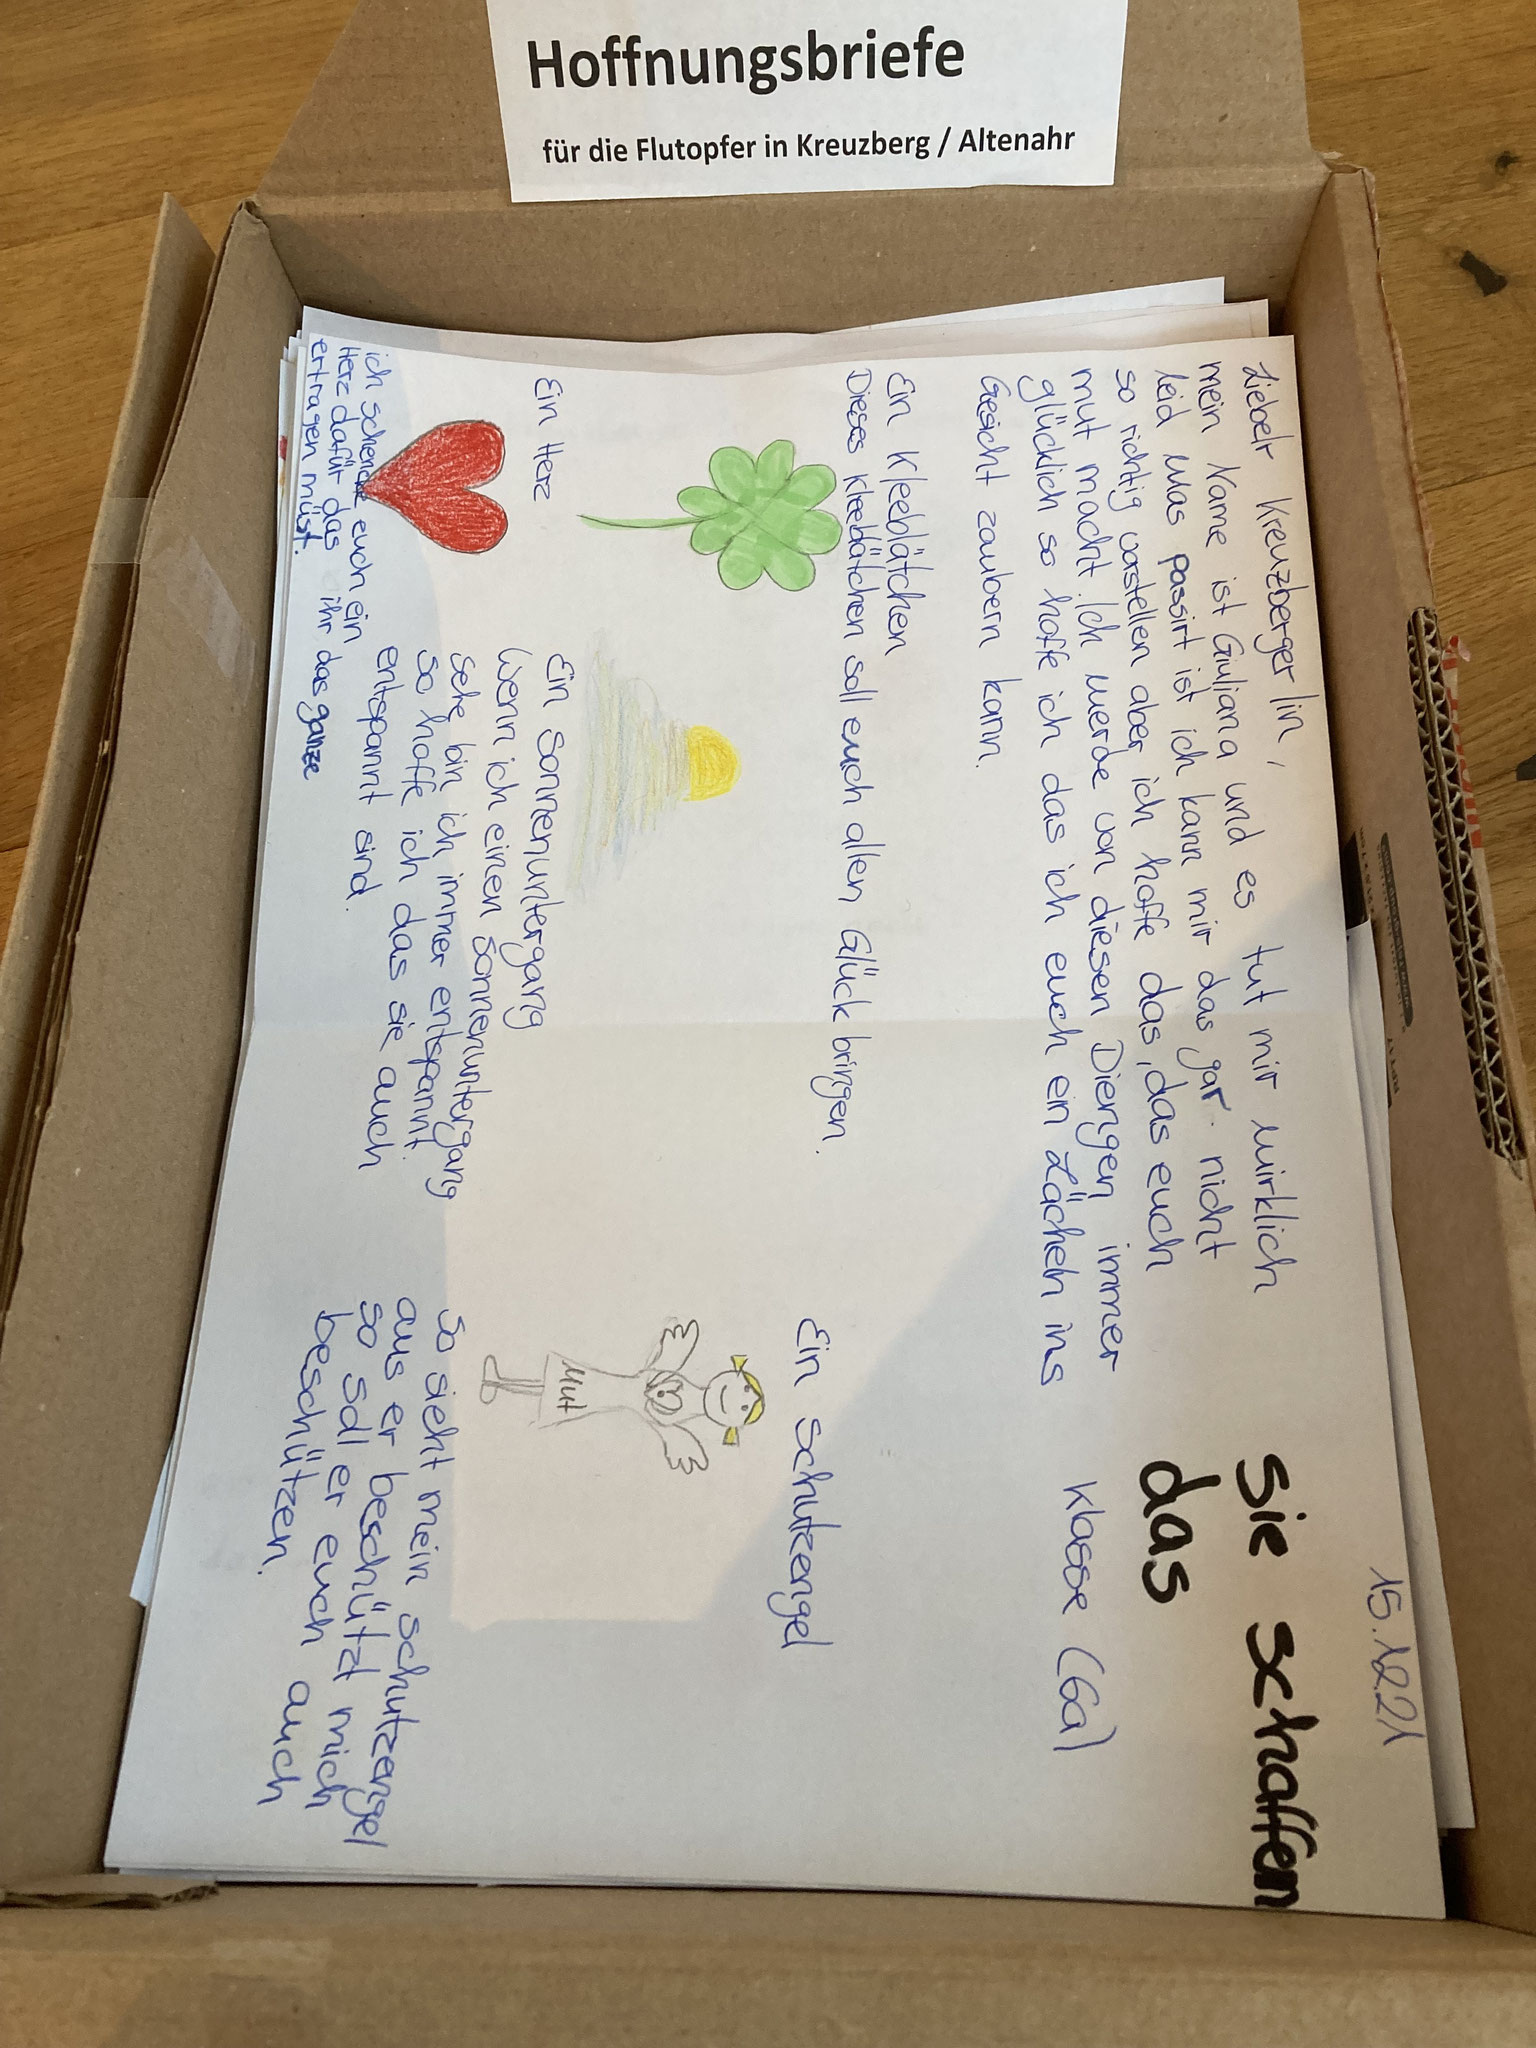 Hoffnungsbriefe
für die Flutopfer in Kreuzberg / Altenahr
15.12.21
Lieber Kreuzberger/in,
mein Name ist Giuliana und es tut mir wirklich
leid was passirt ist ich kann mir das gar nicht
so richtig vorstellen aber ich hoffe das, das euch
mut macht. Ich werde von diesen Diengen immer
glücklich so hoffe ich das ich euch ein Lächeln ins
Gesicht zaubern kann.
Sie schaffen
das
Klasse (6a)
Ein Kleeblätchen
Dieses Kleeblätchen soll euch allen Glück bringen.
Ein Herz
ich schenke euch ein
Herz dafür das ihr das ganze
ertragen müst.
Ein Sonnenuntergang
Wenn ich einen Sonnenuntergang
sehe bin ich immer entspannt.
So hoffe ich das sie auch
entspannt sind.
Ein schutzengel
Mut
So sieht mein schutzengel
aus er beschützt mich
so soll er euch auch
beschützen.